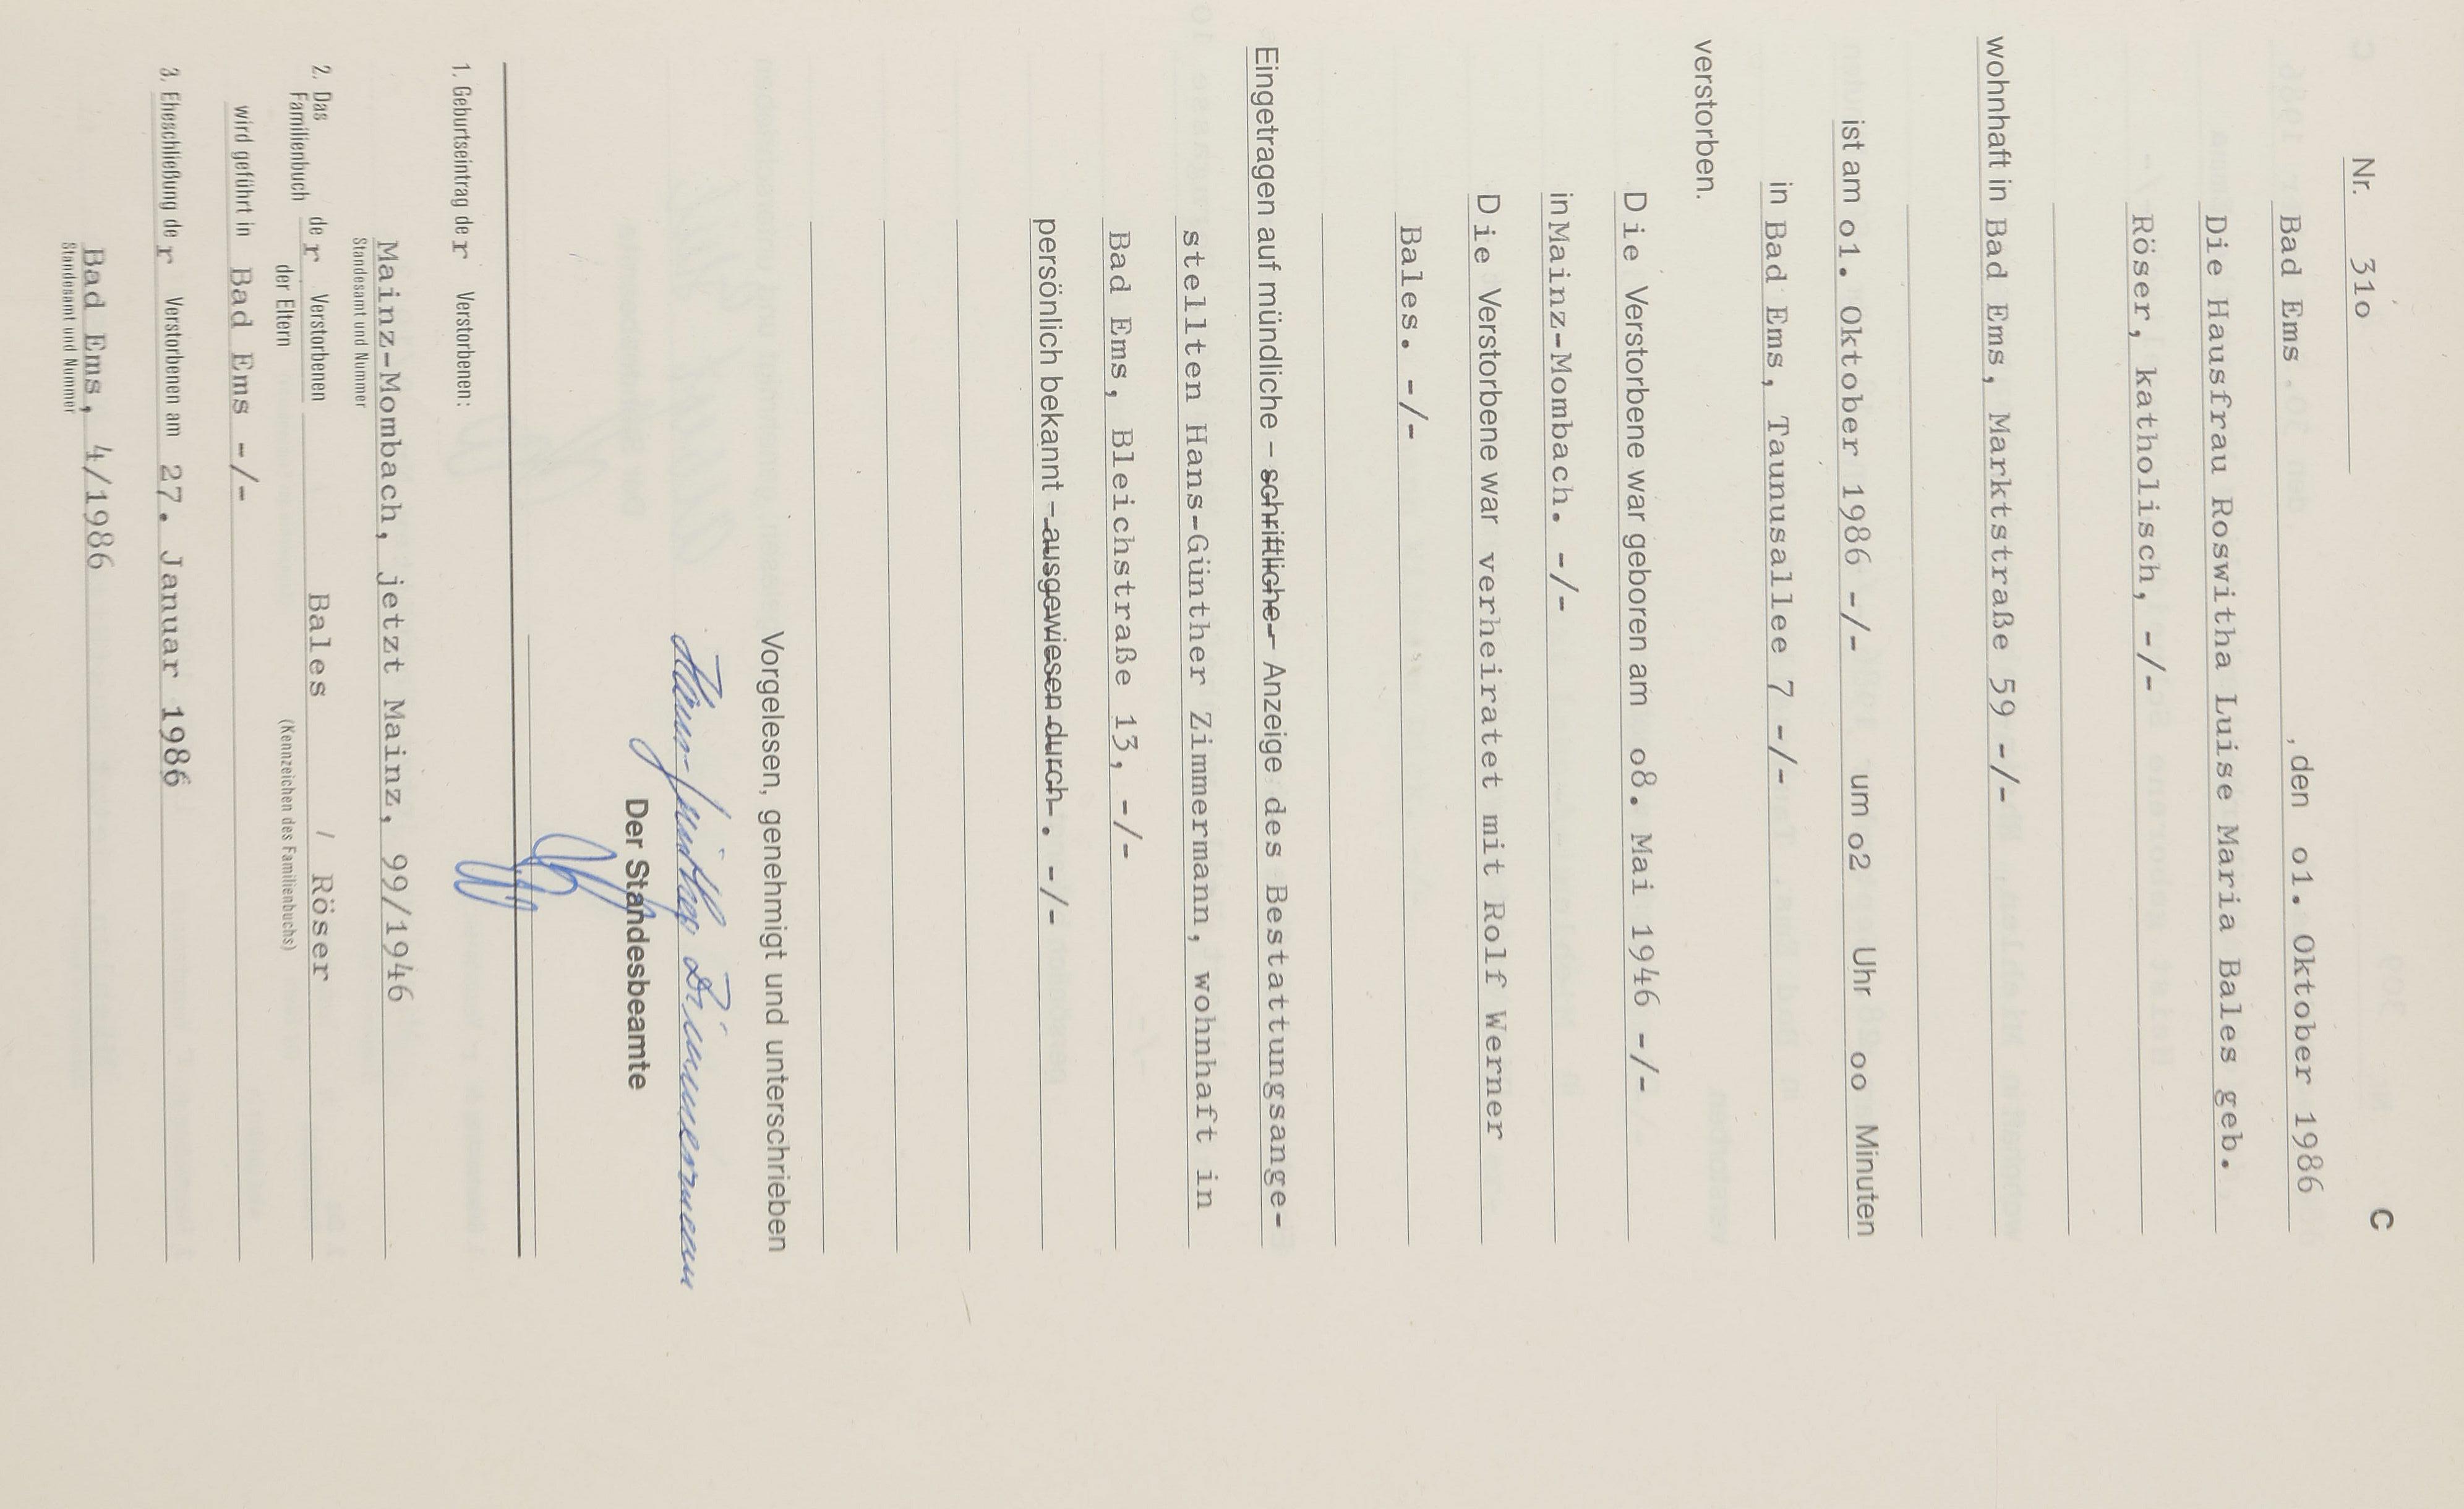 C
Nr. 31o
Bad Ems , den o1. Oktober 1986
Die Hausfrau Roswitha Luise Maria Bales geb.
Röser, katholisch, -/-
wohnhaft in Bad Ems, Marktstraße 59 -/-
ist am o1. Oktober 1986 -/- um o2 Uhr oo Minuten
in Bad Ems, Taunusallee 7 -/-
verstorben.
Die Verstorbene war geboren am o8. Mai 1946 -/-
in Mainz-Mombach. -/-
Die Verstorbene war verheiratet mit Rolf Werner
Bales. -/-
Eingetragen auf mündliche - schriftliche - Anzeige des Bestattungsange-
stellten Hans-Günther Zimmermann, wohnhaft in
Bad Ems, Bleichstraße 13, -/-
persönlich bekannt - ausgewiesen durch - . -/-
Vorgelesen, genehmigt und unterschrieben
Hans-Günther Zimmermann
Der Standesbeamte
1. Geburtseintrag der Verstorbenen:
Mainz-Mombach, jetzt Mainz, 99/1946
Standesamt und Nummer
2. Das Familienbuch der Verstorbenen Bales / Röser
der Eltern (Kennzeichen des Familienbuchs)
wird geführt in Bad Ems -/-
3. Eheschließung der Verstorbenen am 27. Januar 1986
Bad Ems, 4/1986
Standesamt und Nummer